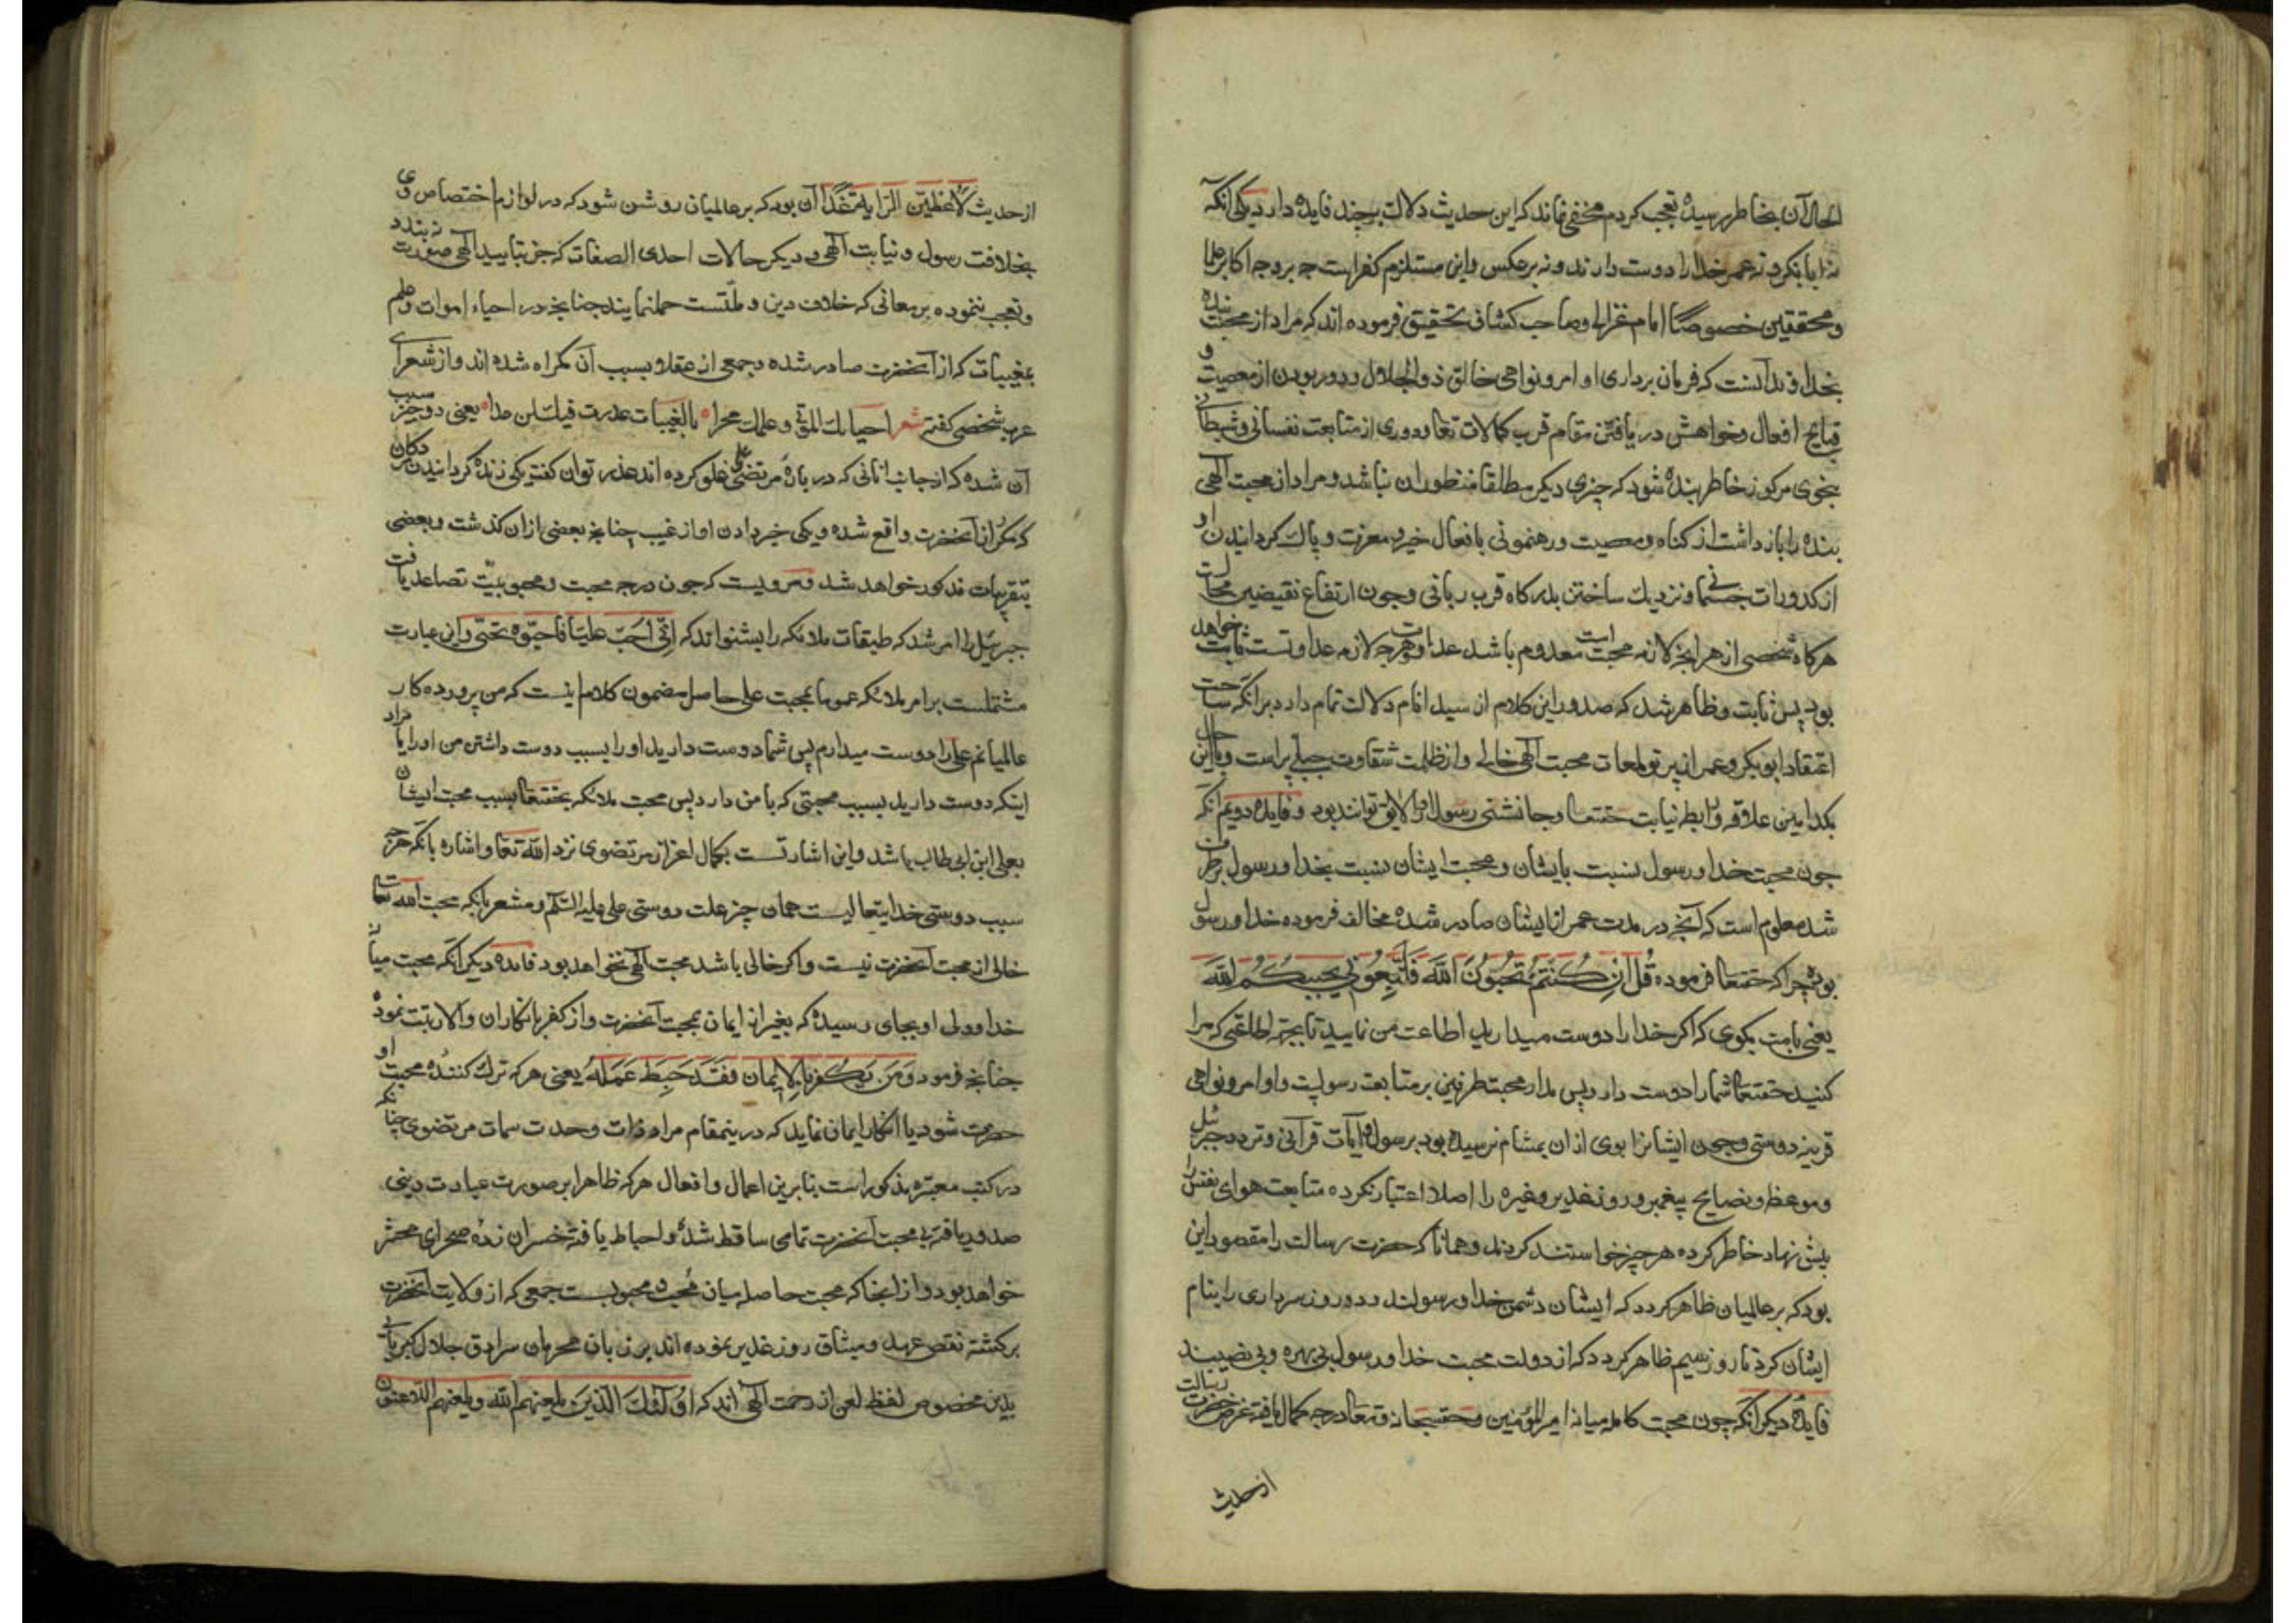 الحال آن بخاطر رسیده تعجب کردم مخفی نماند که این حدیث دلالت بر چند فایده دارد یکی آنکه
ابا بکر و نه عمر خدا را دوست دارند و نه بر عکس و این مستلزم کفر است چه بر وجه اکابر علما
و محققین خصوصًا امام غزالی و صاحب کشاف تحقیق فرموده اند که مراد از محبت بنده
بخداوند آنست که فرمان برداری او امر و نواهی خالق ذو الجلال و دور بودن از معصیت و
قبایح افعال و خواهش دریافتن مقام قرب کمالات تعا و دوری از متابعت نفسانی و شیطانی
بنحوی مرکوز خاطر بنده شود که چیزی دیگر مطلقا منظور آن نباشد و مراد از محبت الهی
بنده را باز داشت از کناه و معصیت و رهنمونی بافعال خیر و معرفت و پاک کردانیدن او
از کدورات جسمانی و نزدیک ساختن بدرکاه قرب ربانی و چون ارتفاع نقیضین محالست
هرکاه شخصی از هر آنچه لازمه محبت است معدوم باشد عداوت و هر چه لازمه عداوتست ثابت خواهد
بود پس ثابت و ظاهر شد که صدور این کلام از سید انام دلالت تمام دارد بر آنکه ساحت
اعتقاد ابو بکر و عمر از پرتو لمعات محبت الهی خالی و از ظلمت شقاوت جبلی پر است و با این حال
بکدامین علاقه و رابطه نیابت حقتعا و جانشنی رسول او را لایق توانند بود و فایده دویم آنکه
چون محبت خدا و رسول نسبت بایشان و محبت ایشان نسبت بخدا و رسول بر طرف
شد معلوم است که آنچه در مدت عمر از ایشان صادر شده مخالف فرموده خدا و رسول
بوده چرا که حقتعا فرموده قُل اِنْ كُنْتُمْ تُحِبُّونَ اللَّهَ فَاتَّبِعُونِي يُحْبِبْكُمُ اللَّهُ
یعنی بامت بکوی که اکر خدا را دوست میدارید اطاعت من نمایید تا بجهة اطاعتی که مرا
کنید حقتعا شما را دوست دارد پس مدار محبت طرفین بر متابعت رسولست و اوامر و نواهی
قرینه دوستی و چون ایشانرا بوی از آن بمشام نرسیده بود بر سول و آیات قرآنی و تردد جبرئیل
و موعظه و نصایح پیغمبر و روز غدیر و غیره را اصلا اعتبار نکرده متابعت هوای نفس را
پیش نهاد خاطر کرده هر چیز خواستند کردند و همانا که حضرت رسالت را مقصود این
بود که بر عالمیان ظاهر کردد که ایشان دشمن خدا و رسولند و دو روز سرداری را بنام
ایشان کرد تا روز سیم ظاهر کردد که از دولت محبت خدا و رسول بی بهره و بی نصیبند
فایدهٔ دیکر آنکه چون محبت کامله میانه امیر المؤمنین و حقسبحانه و تعا درجه کمال یافته غرض حضرت رسالت
از حدیث
از حدیث لأعطین الرایة غدًا آن بود که بر عالمیان روشن شود که در لوازم اختصاص وی
بخلافت رسول و نیابت الهی و دیکر حالات احدی الصفات که جز بتایید الهی صورت نه بندد
و تعجب ننموده بر معانی که خلاف دین و ملّتست حمل ننمایند چنانچه در احیاء اموات و علم
بغیبیات که از آنحضرت صادر شده و جمعی از عقلا بسبب آن کمراه شده اند و از شعرای
عرب شخصی کفته شعر بالغیبات یعنی دو چیز سبب
آن شده که از جانب آنانی که در باره مرتضی علی غلو کرده اند عذر توان کفت یکی زنده کردانیدن مردکان
که مکرر از آنحضرت واقع شده و یکی خبر دادن او از غیب چنانچه بعضی از آن کذشت و بعضی
بتقریبات مذکور خواهد شد و مرویست که چون درجه محبت و محبوبیّت تصاعد یافت
جبرئیل را امر شد که طبقات ملائکه را بشنواند که اِنّی اُحِبّ علیّا فاحبّوه بحبّی و این عبارت
مشتملست بر امر ملائکه عموما بمحبت علی حاصل مضمون کلام اینست که من پرورده کار
عالمیانم علی را دوست میدارم پس شما دوست دارید او را بسبب دوست داشتن من او را یا مراد
اینکه دوست دارید بسبب محبتی که با من دارد پس محبت ملائکه بحقتعا بسبب محبت ایشان
بعلی ابن ابی طالب باشد و این اشارتست بکمال اعزاز مرتضوی نزد الله تعا و اشاره بآنکه هر چه
سبب دوستی خدایتعالیست همان چیز علت دوستی علی علیه السّلم و مشعر بآنکه محبت الله تعا
خالی از محبت آنحضرت نیست و اکر خالی باشد محبت الهی نخواهد بود فایده دیکر آنکه محبت میان
خدا و ولی او بجای رسیده که بغیر از ایمان بمحبت آنحضرت و از کفر بانکار آن
چنانچه فرمود وَمَن يَكْفُر بِالْإِيمَانِ فَقَدْ حَبِطَ عَمَلُهُ یعنی هر که ترک کنندهٔ محبت او
حضرت شود یا انکار ایمان نماید که درینمقام مراد ذات وحدت سمات مرتضوی چنانکه
در کتب معتبره مذکور است بنابرین اعمال و افعال هر که ظاهرا بر صورت عبادت دینی
صدور یافته بی محبت آنحضرت تمامی ساقط شده و احباط یافته خسران زده صحرای محشر
خواهد بود و از آنجا که محبت حاصله میان مُحب و محبوبست جمعی که از ولایت آنحضرت
برکشته نقض عهد و میثاق روز غدیر نموده اند بر زبان محرمان سرادق جلال کبریائی
بدین مخصوص لفظ لعن از رحمت الهی اند که أُولَٰئِكَ الَّذِينَ يلعنهم الله ويلعنهم اللاعنون